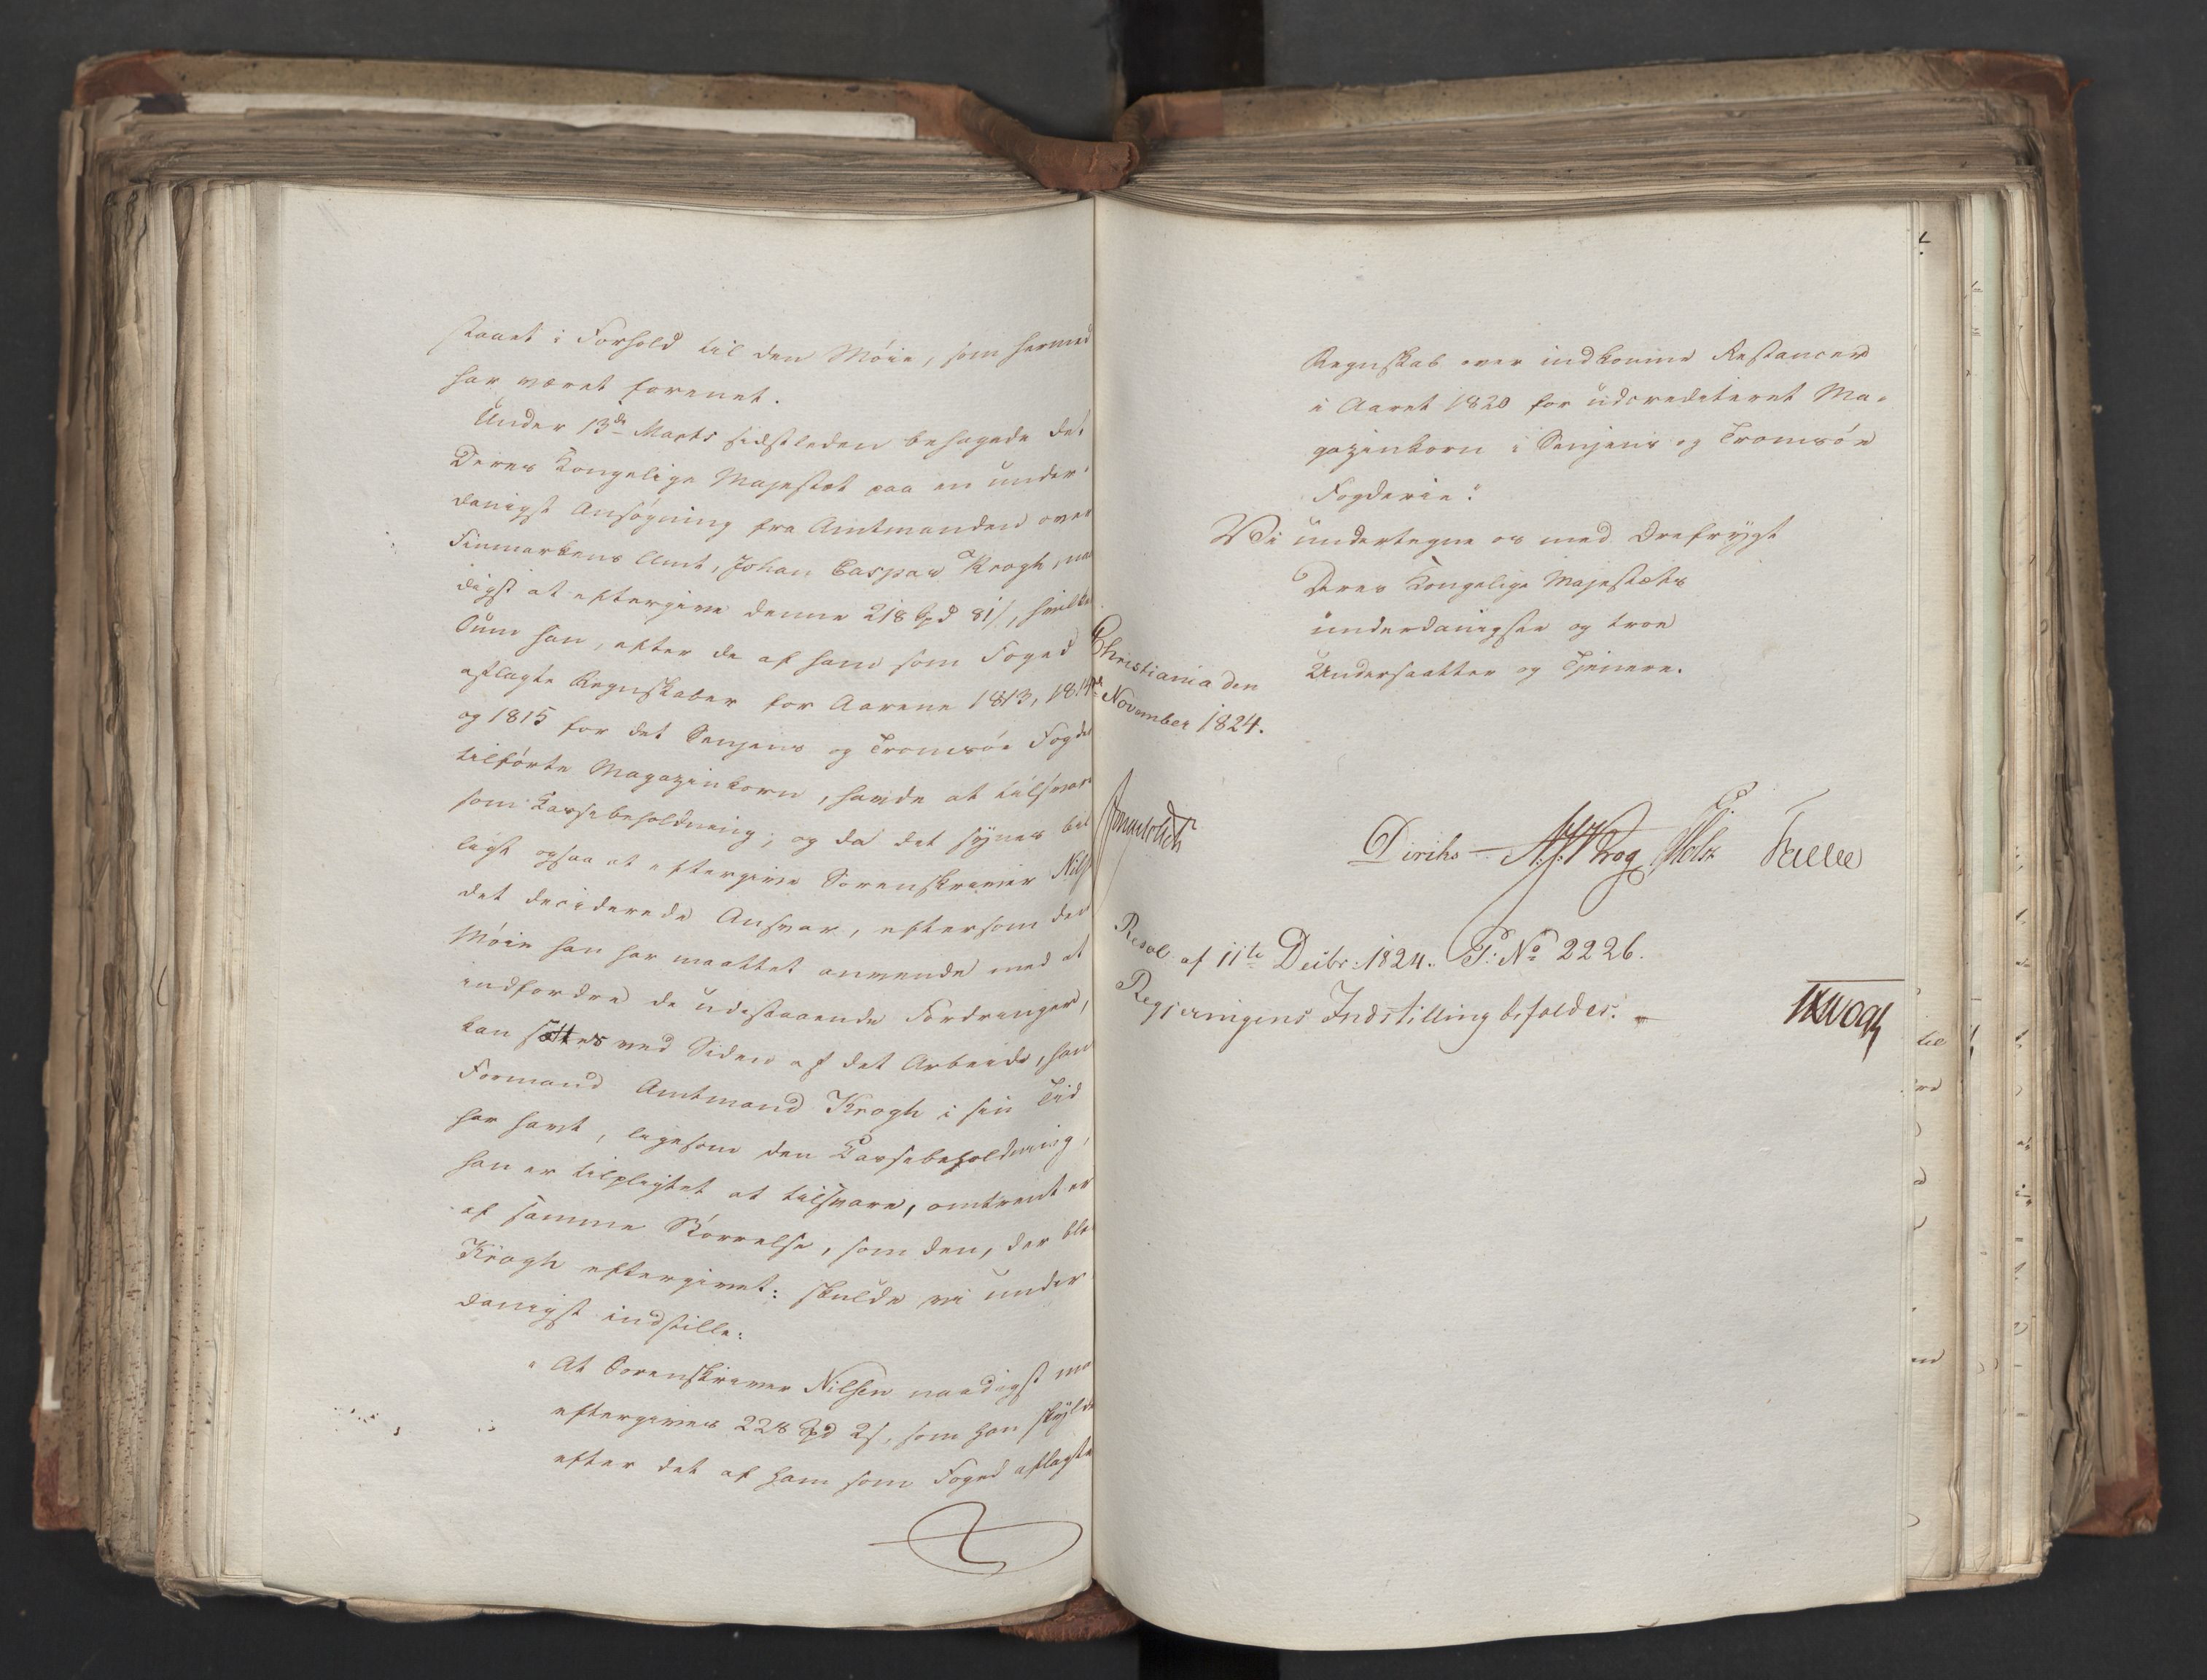 staaet i Forhold til den Møie, som hermed
har været forenet.
Under 13de Marts sidstleden behagede det
Deres Kongelige Majestæt paa en under-
danigst Ansøgning fra Amtmanden over
Finmarkens Amt, Johan Caspar Krogh, naa
digst at eftergive denne 218 Spd 81/, hvilken
Sum han, efter de af ham som Foged
aflagte Regnskaber for Aarene 1813, 1814
og 1815 for det Senjens og Tromsøe Fogde
tilførte Magazinkorn, havde at tilsvare
som Kassebeholdning; og da det synes bil
ligt ogsaa at eftergive Sorenskriver Nils
det deciderede Ansvar, eftersom den
Møie han har maattet anvende med at
indfordre de udestaaende Fordringer,
kan sættes ved Siden af det Arbeide, han
Formand Amtmand Krogh i sin Tid
har havt, ligesom den Kassebeholdning,
han er tilpligtet at tilsvare, omtrent er
af samme Størrelse, som den, der blev
Krogh eftergivet: skulde vi under
danigst indstille:
"At Sorenskriver Nilsen naadigst maa
eftergives 228 Spd 2/, som han skylder
efter det af ham som Foged aflagte
Regnskab over indkomne Restancer
i Aaret 1820 for udcrediteret Ma-
gazinkorn i Senjens og Tromsøe
Fogderie."
Vi undertegne os med Ærefrygt
Deres Kongelige Majestæts
underdanigste og troe
Undersaatter og Tjenere.
Christiania den
November 1824.
Diriks N. J. Krog Holst Fasting
Resol. af 11te Decbr: 1824. P: No 2226.
Regjeringens Indstilling bifaldes.
til